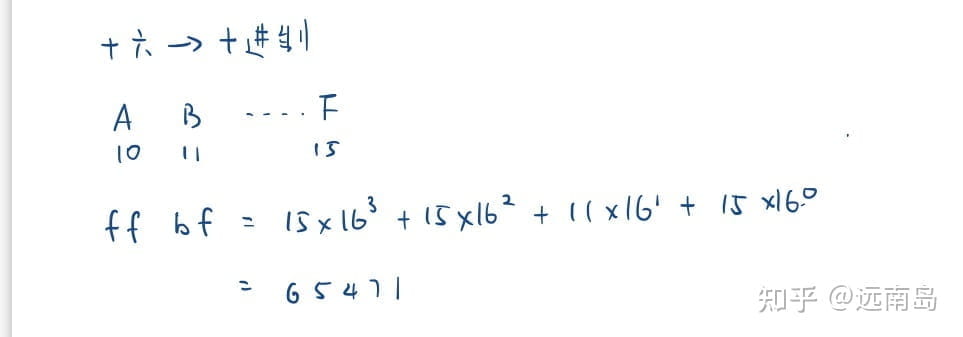 十六→十进制
A B ····· F
10 11 15
ff bf = 15×16³ + 15×16² + 11×16¹ + 15×16⁰
= 65471
知乎 @远南岛